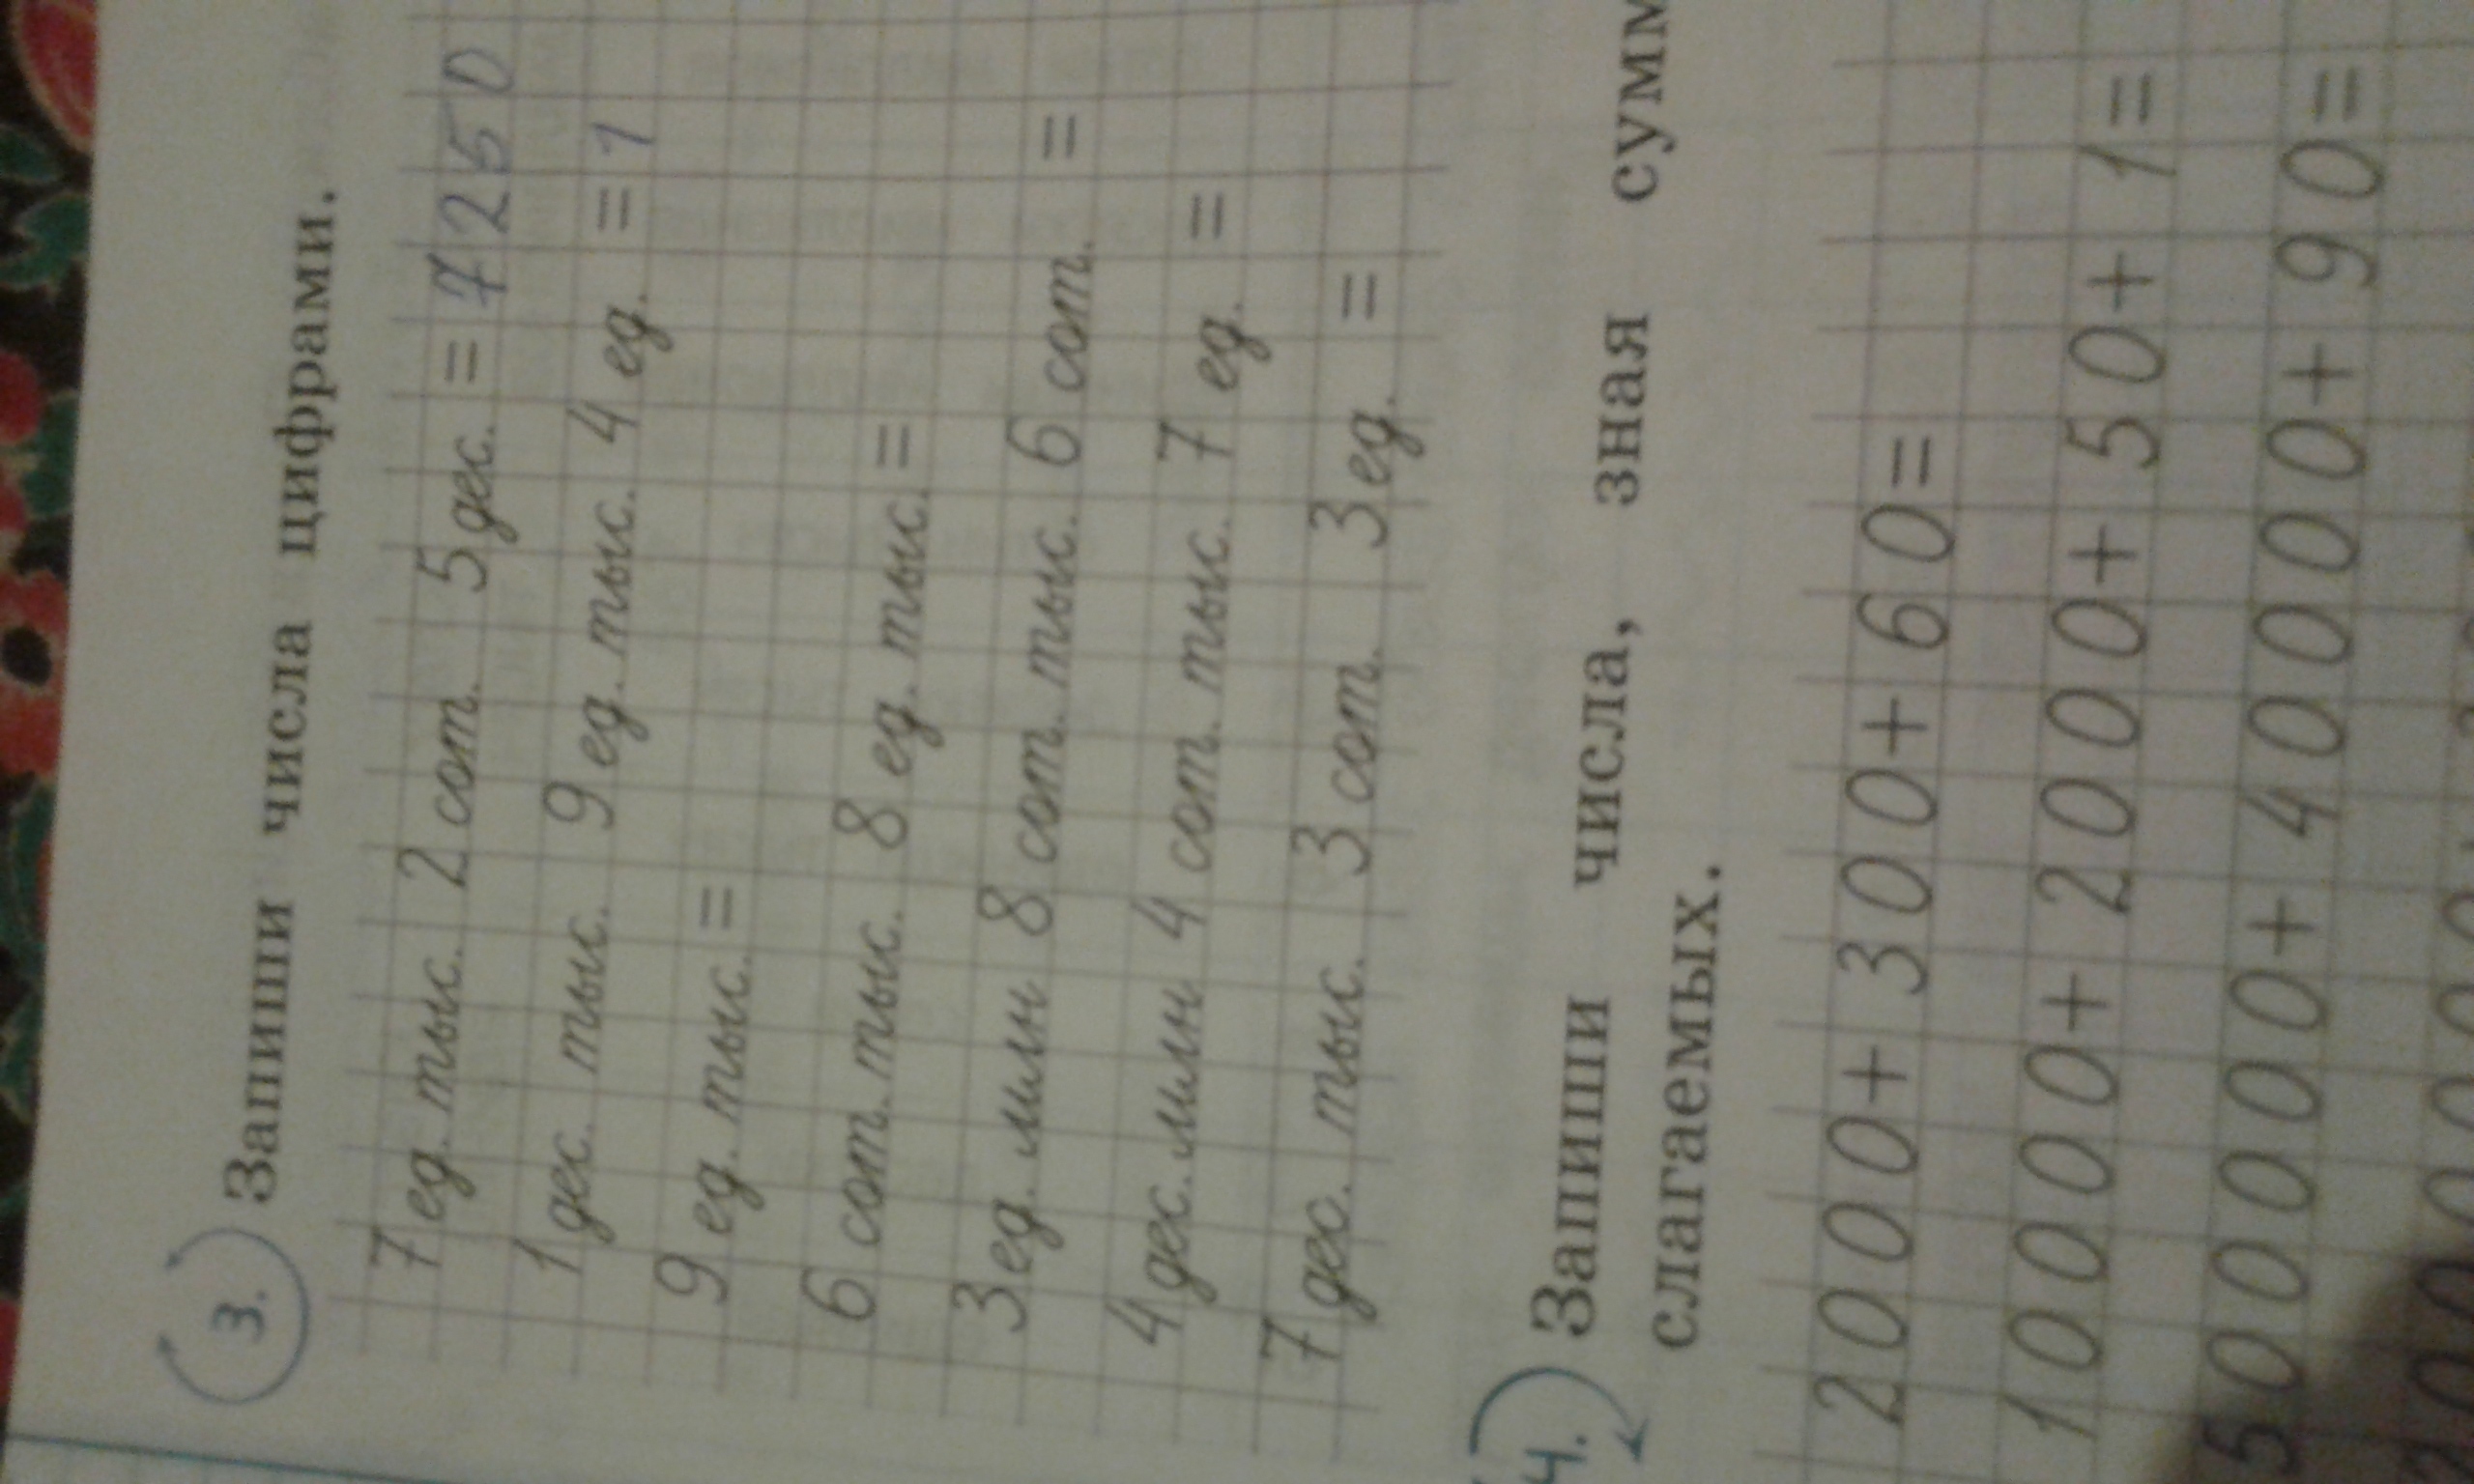 3. Запиши числа цифрами.
7 ед. тыс. 2 сот. 5 дес. = 7 2 5 0
1 дес. тыс. 9 ед. тыс. 4 ед. = 1
9 ед. тыс. =
6 сот. тыс. 8 ед. тыс. =
3 ед. млн 8 сот. тыс. 6 сот. =
4 дес. млн 4 сот. тыс. 7 ед. =
7 дес. тыс. 3 сот. 3 ед. =
4. Запиши числа, зная сумм
слагаемых.
2000+300+60=
10000+2000+50+1=
500000+40000+90=